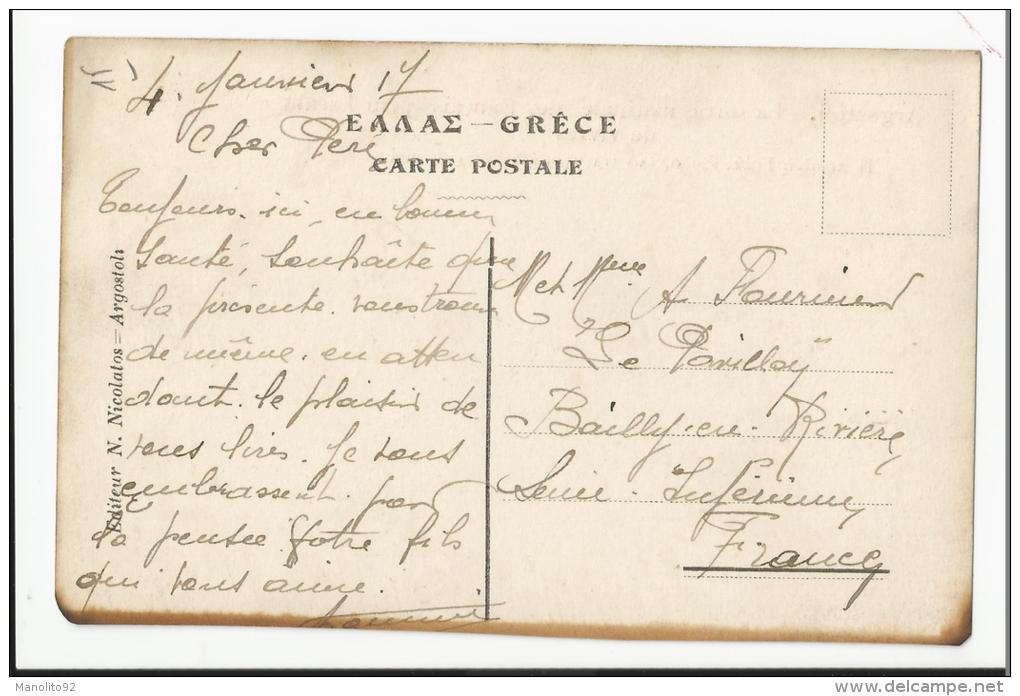 4. Janvier 17
Cher Père
ΕΛΛΑΣ — GRÈCE
CARTE POSTALE
Toujours ici, en bonne
santé, souhaite que
la présente vous trouve
de même. en atten
dant. le plaisir de
vous lires. Je vous
embrassent. par
la pensée. Votre fils
qui vous aime.
Editeur N. Nicolatos = Argostoli
M et Mme A Fournier
"Le Pavillon"
Bailly-en-Rivière
Seine-Inférieure
France
Manolito92